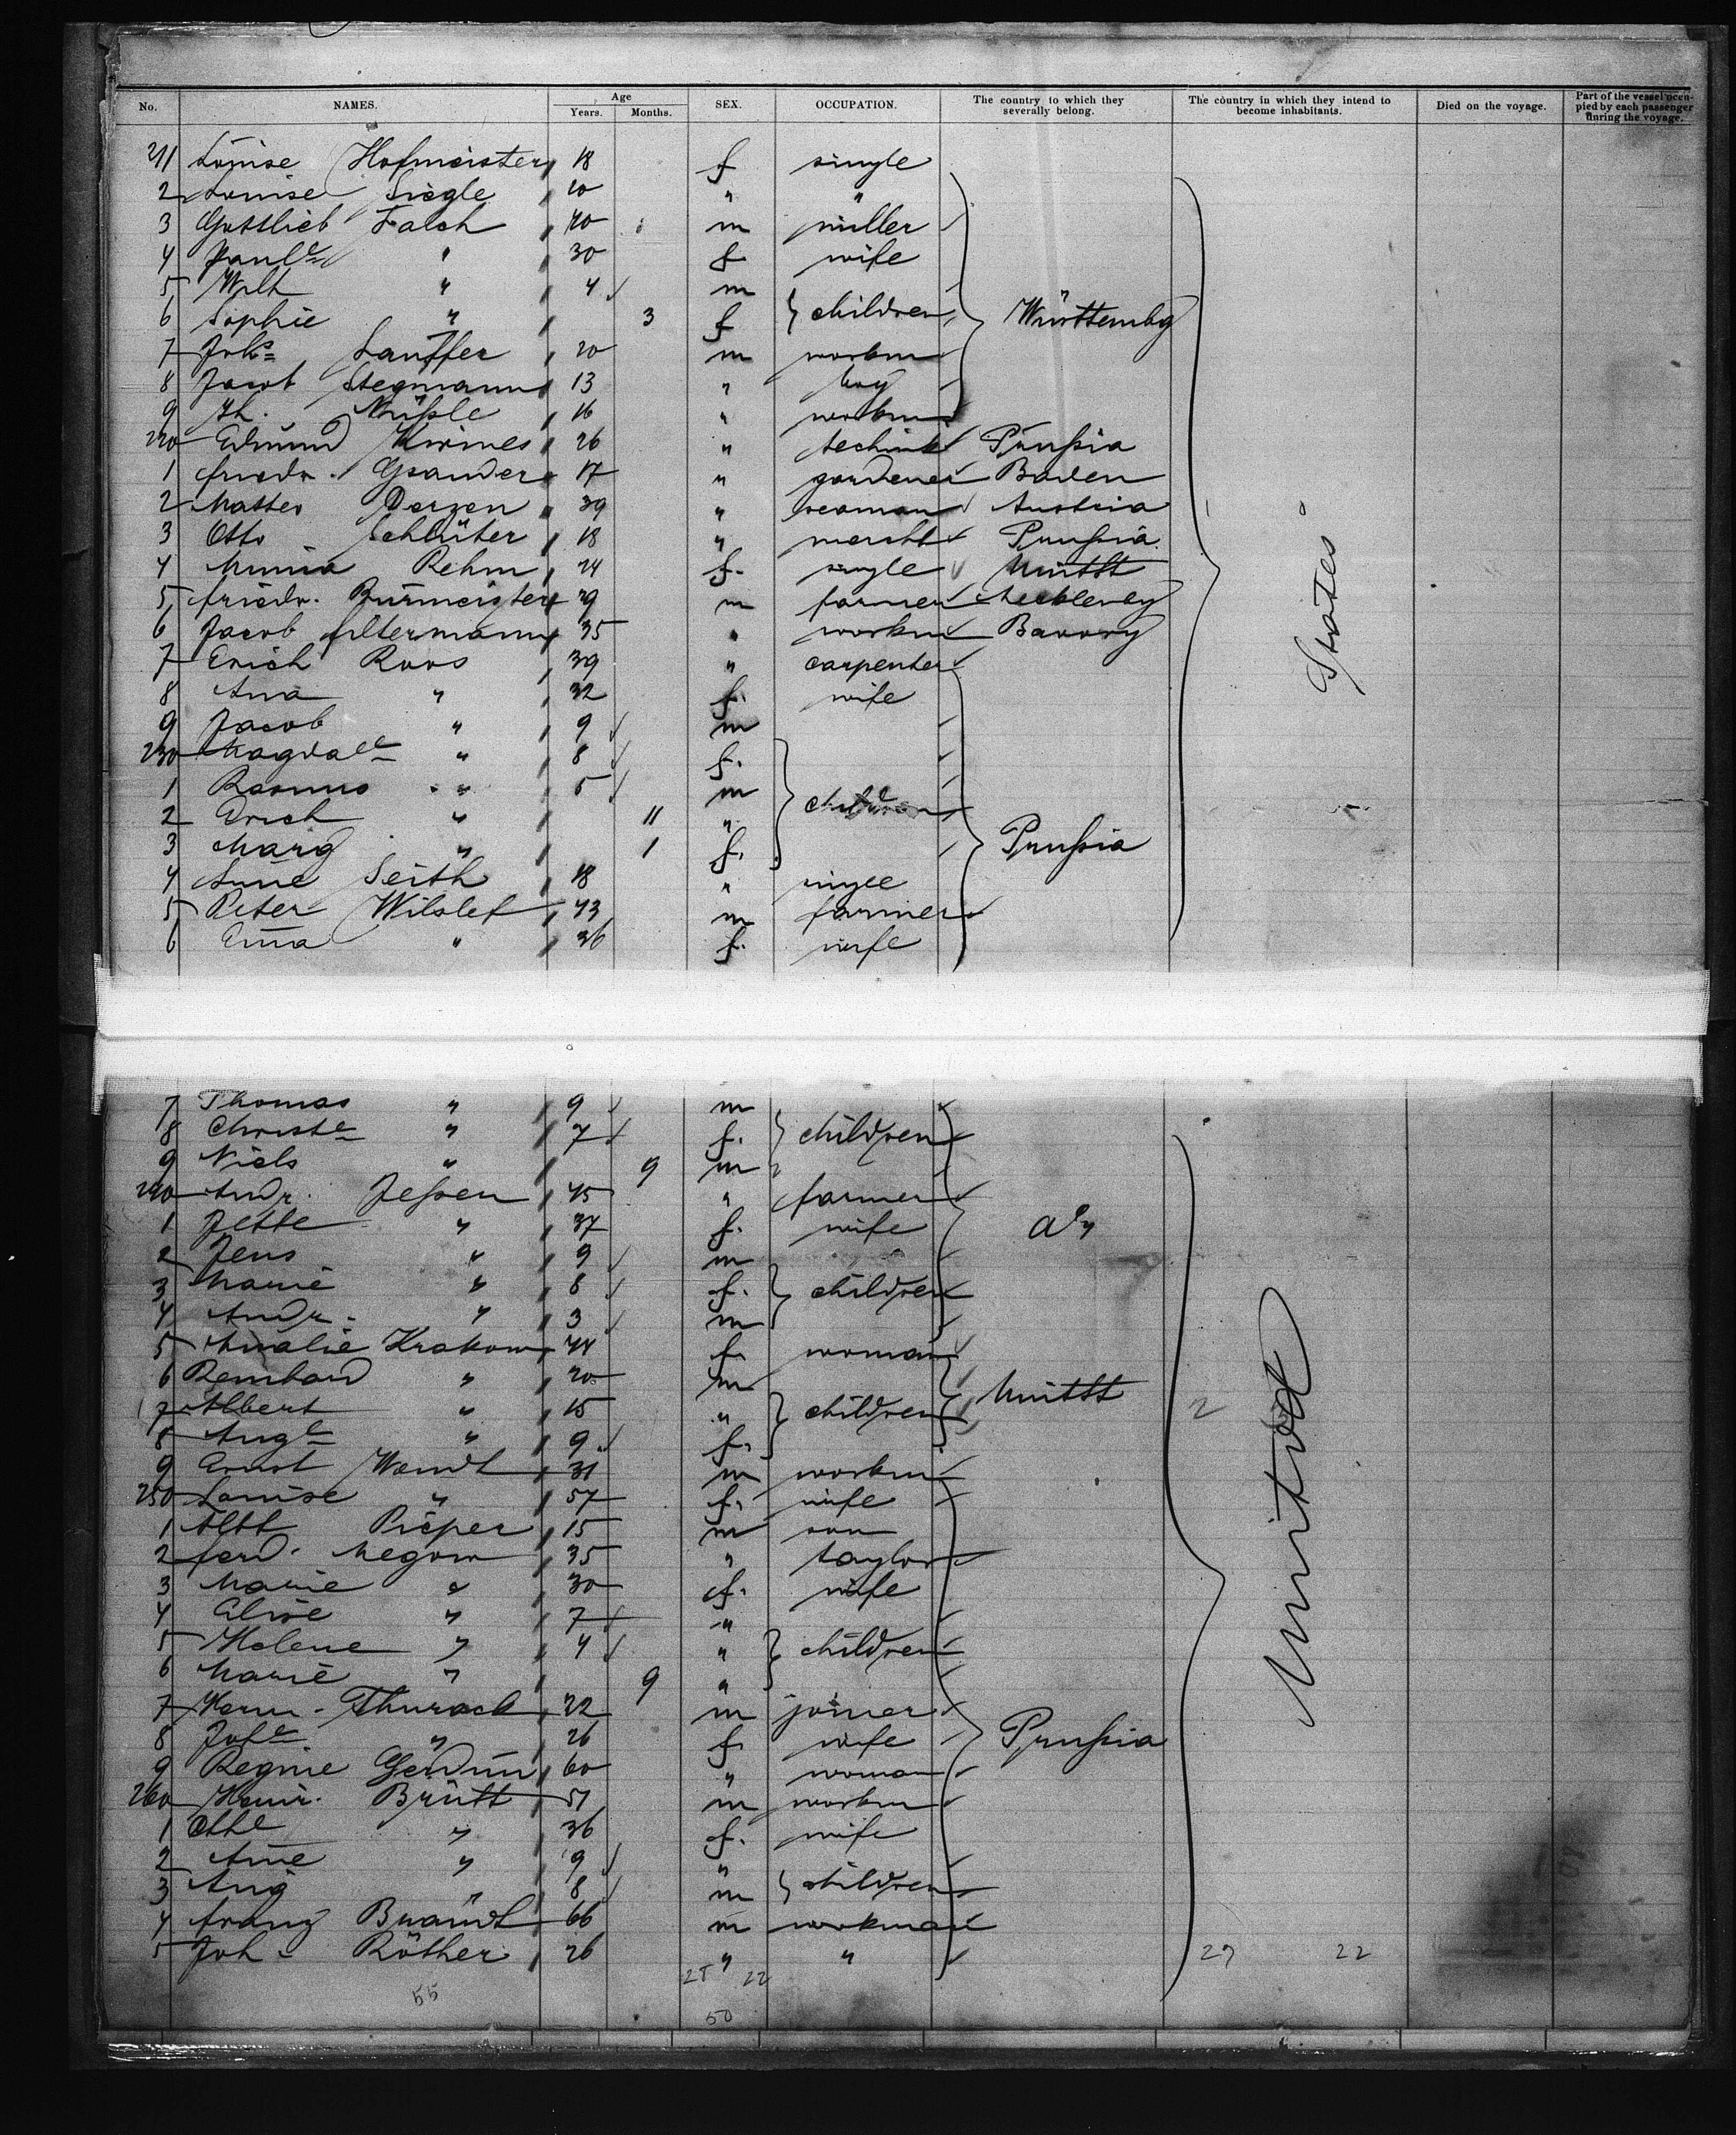 No. NAMES. Age Years. Months. SEX. OCCUPATION. The country to which they severally belong. The country in which they intend to become inhabitants. Died on the voyage. Part of the vessel occupied by each passenger during the voyage.
211 Louise Hofmeister 18 f single
2 Louise Siegle 20 " "
3 Gottlieb Falch 40 m miller
4 Paule " 30 f wife
5 Wilh " 4 m
6 Sophie " 3 f children Württembg
7 Johs Lauffer 20 m workm
8 Jacob Stegmann 13 " boy
9 Fh. Nüßle 16 " workm
220 Edmund 26 " Prußia
1 friedr. Gsander 17 " gardener Baden
2 Matteo 39 " seaman Austria
3 Otto Schlüter 18 " Prußia
4 Minna Rehm 24 f. single Unitst
5 friedr. Burmeister 29 m farmer
6 Jacob Altermann 35 " workm
7 Erich Roos 39 " carpenter
8 Ana " 32 f. wife
9 Jacob " 9 m
230 Magdale " 8 f.
1 Rasmus " 5 m
2 Erich " 11 " children
3 Marg " 1 f. Prußia
4 Anne Seith 18 " single
5 Peter Wilslef 43 m farmer
6 " 36 f. wife
States
7 Thomas " 9 m
8 Christe " 7 f. children
9 Niels " 9 m
240 Andr. Jeßen 45 " farmer
1 Jette " 37 f. wife
2 Jens " 9 m
3 Marie " 8 f. children
4 Andr. " 3 m
5 Amalie Krakow 44 f. woman
6 " 20 m
7 Albert " 15 " children Unitst 2
8 Auge " 9 f.
9 Ernst Wendt 31 m workm
250 Louise " 57 f. wife
1 Albt Pieper 15 m son
2 ferd. Megow 35 " taylor
3 Marie " 30 f. wife
4 Elise " 7 "
5 Helene " 4 " children
6 Marie " 9 "
7 Herm. Thurack 22 m joiner
8 Johe " 26 f wife Prußia
9 Regine 60 " woman
260 Heinr. Brütt 51 m workm
1 " 36 f. wife
2 Ane " 9 "
3 Aug " 8 m children
4 franz Brandt 66 m workman
5 Joh. Röther 26 " "
United
27 22
28 22
55
50